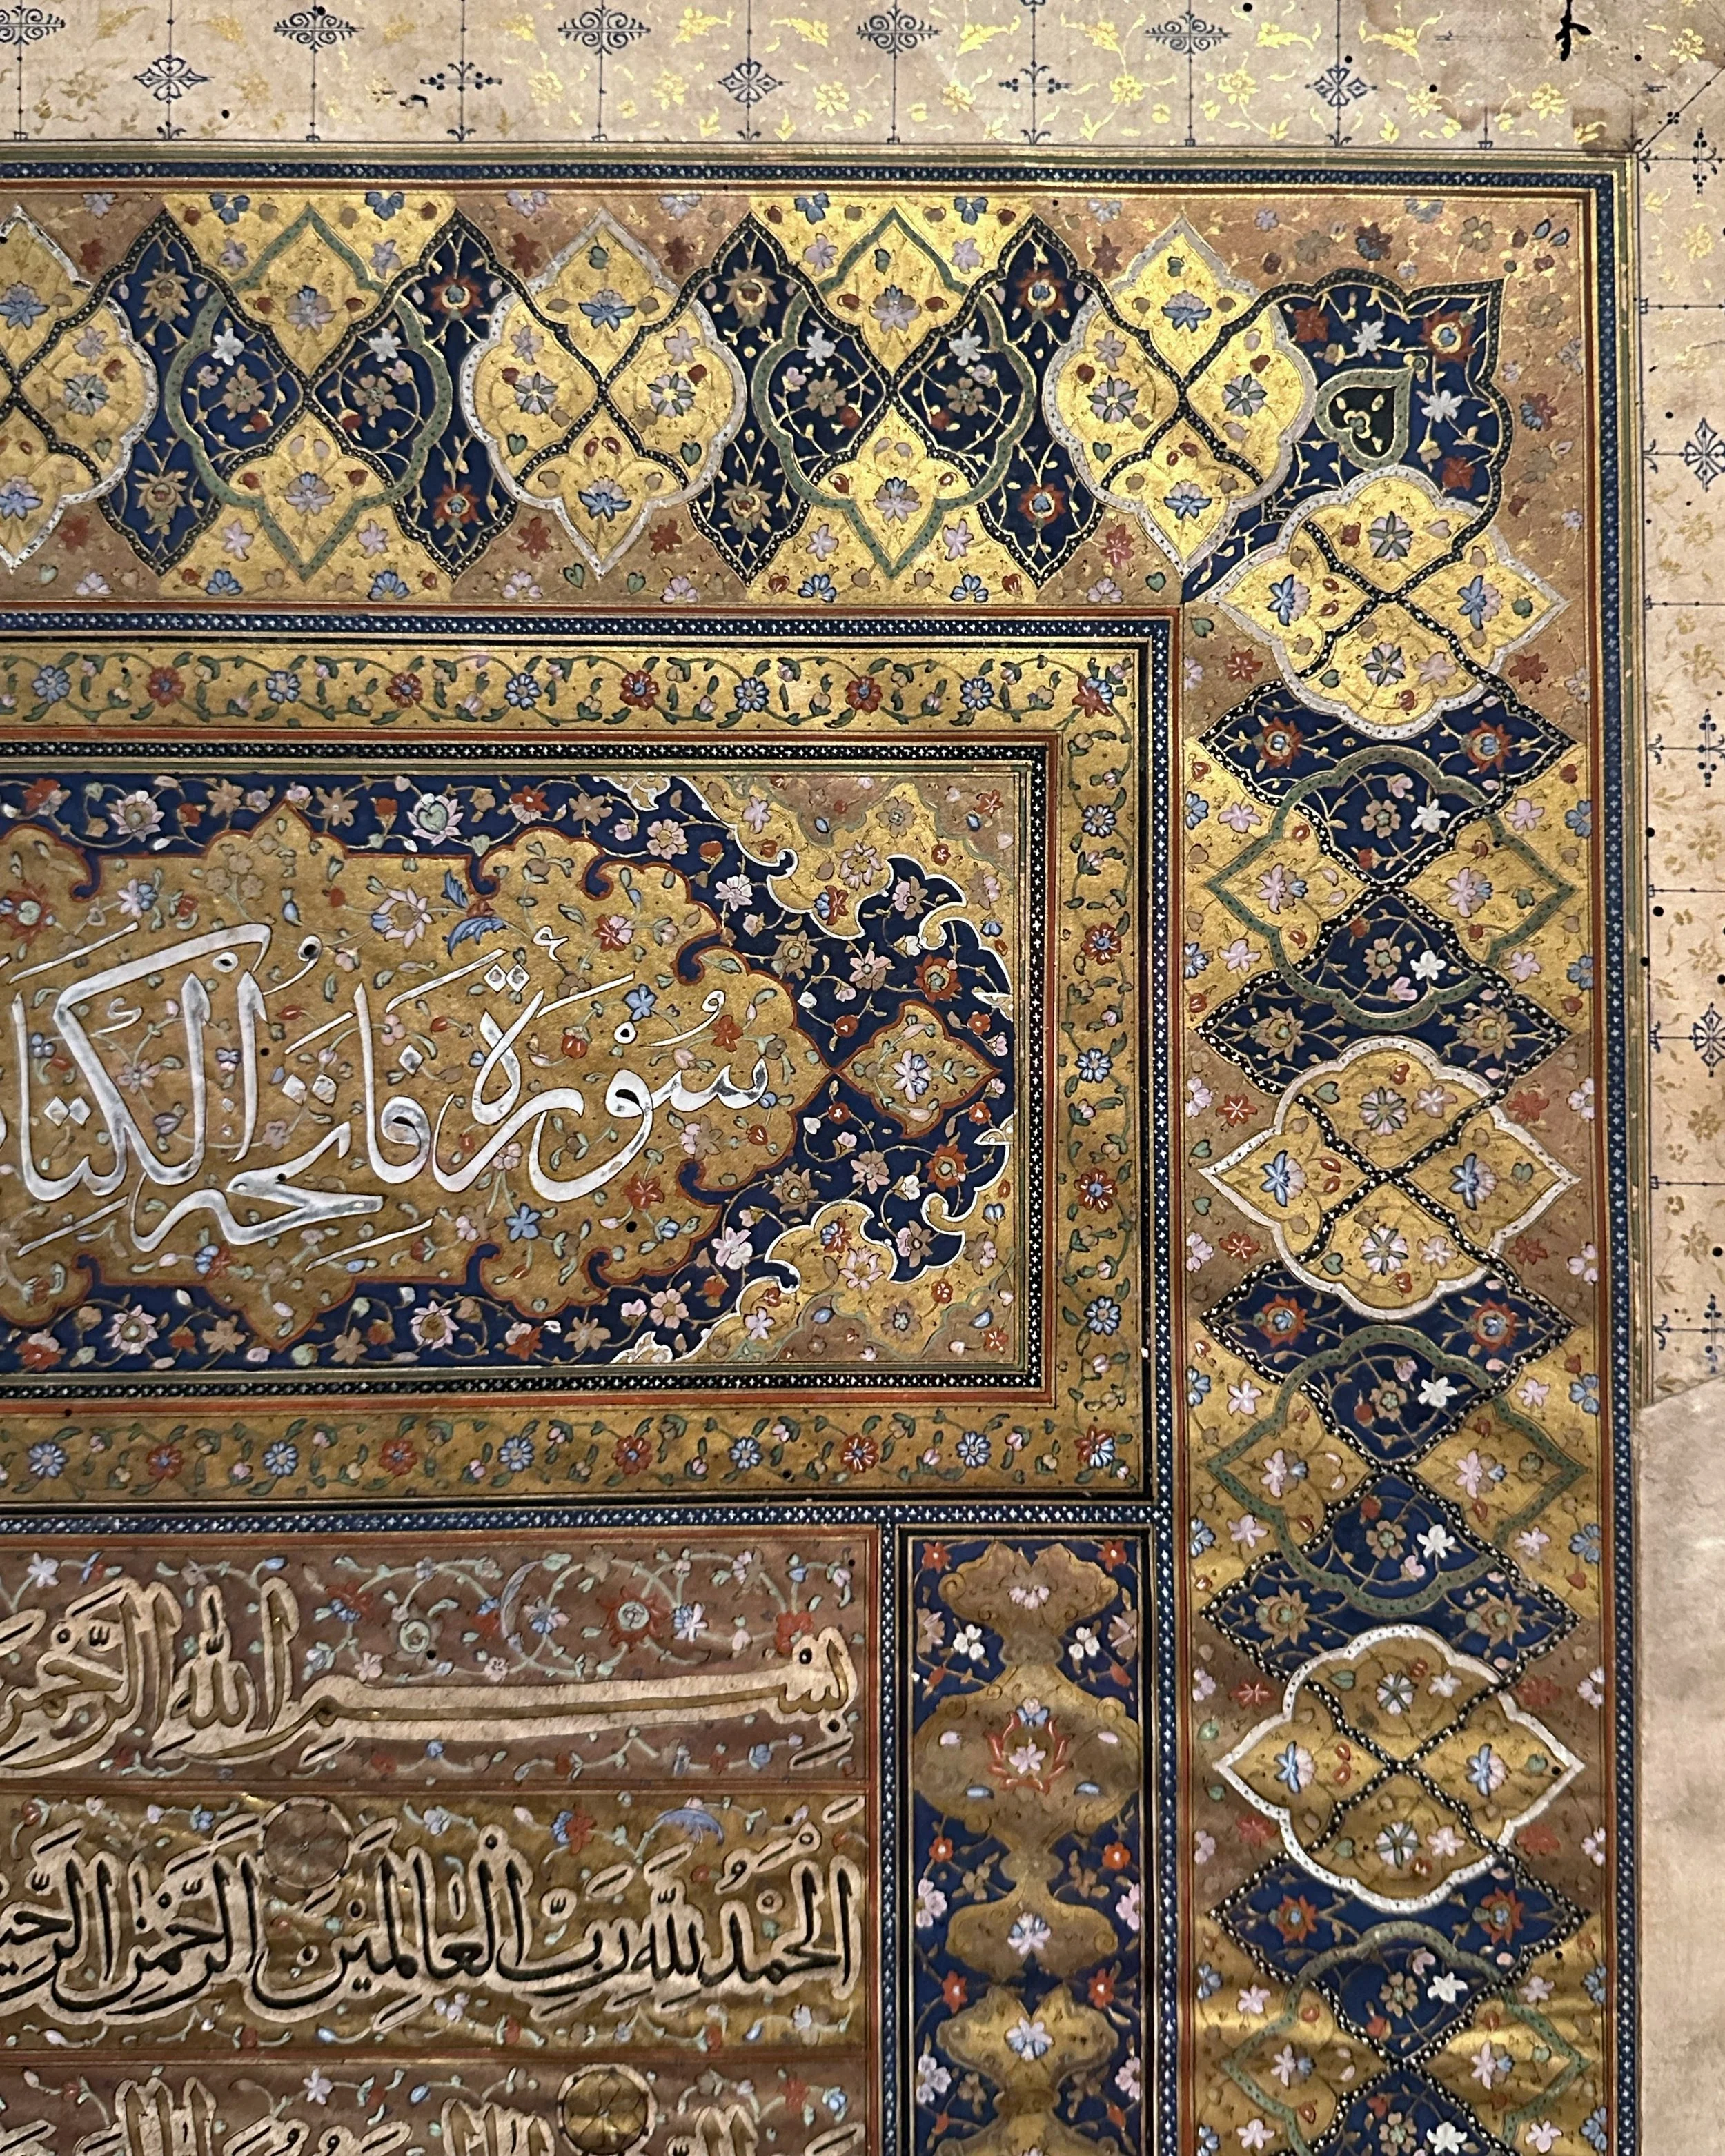 سُوْرَةُ فَاتِحَةِ الْكِتَا
بِسْمِ اللّٰهِ الرَّحْمٰنِ
اَلْحَمْدُ لِلّٰهِ رَبِّ الْعَالَمِيْنَ الرَّحْمٰنِ الرَّحِيْ